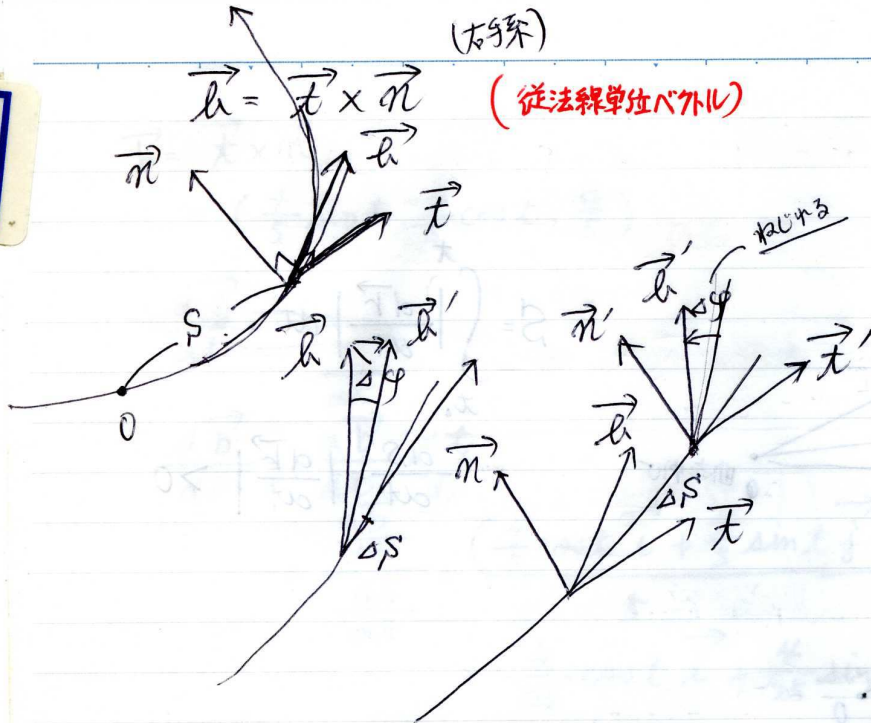 (右手系)
b⃗ = t⃗ × n⃗
(従法線単位ベクトル)
n⃗
b⃗
t⃗
S
O
b⃗
b⃗'
Δφ
ΔS
ねじれる
b⃗'
Δφ
n⃗'
t⃗'
n⃗
b⃗
ΔS
t⃗